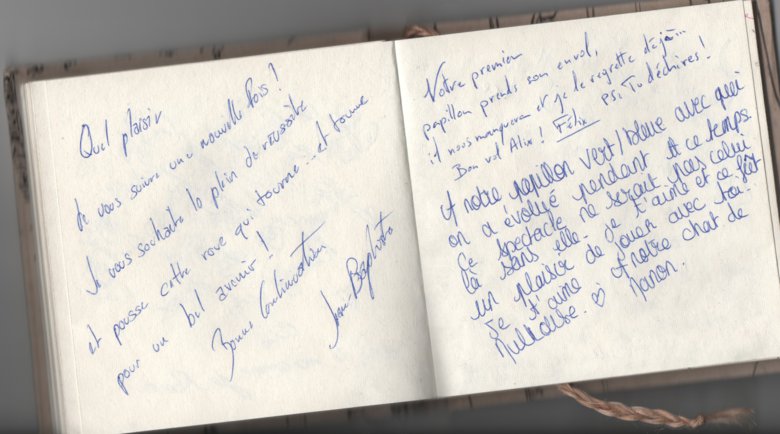 Quel plaisir
de vous suivre une nouvelle fois !
Je vous souhaite le plein de réussite
et pousse cette roue qui tourne... et tourne
pour un bel avenir !
Bonne Continuation
Jean Baptiste
Votre premier
papillon prends son envol,
il nous manquera et je le regrette déjà...
Bon vol Alix ! Félix ps: Tu déchires !
A notre papillon vert/bleue avec qui
on a évolué pendant tt ce temps.
Ce spectacle ne serait pas celui
là sans elle. Je t'aime et ce fût
un plaisir de jouer avec toi...
Je t'aime A notre chat de
Mulhouse. ♡ Manon.